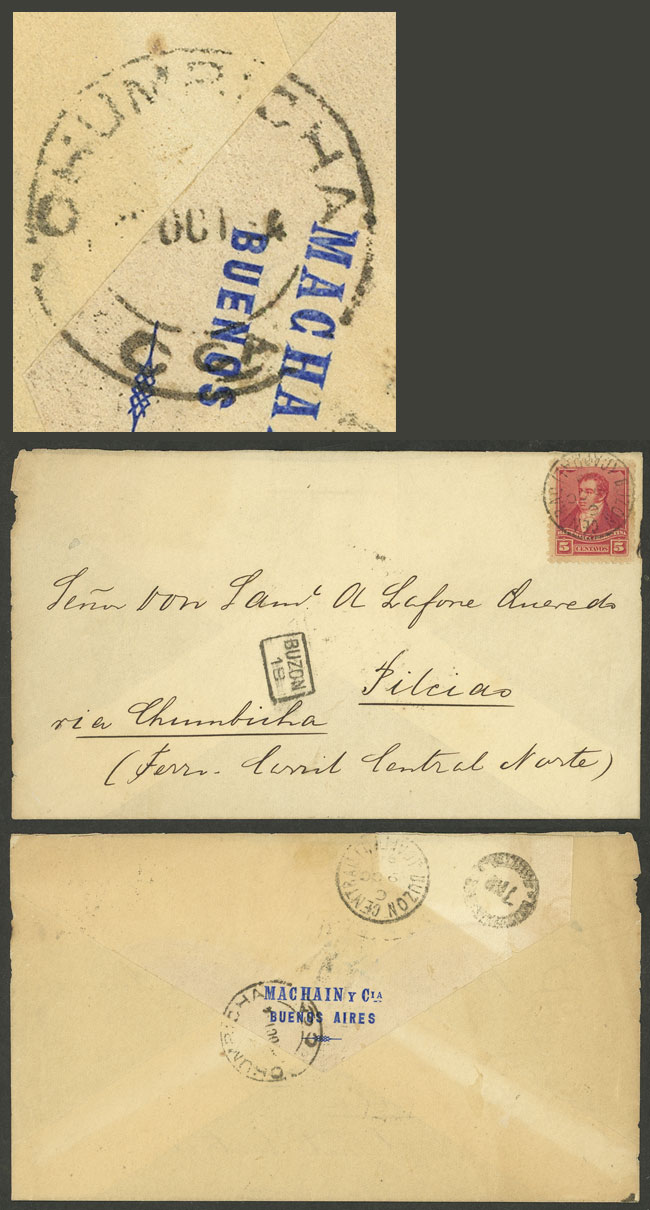 CHUMBICHA
OCT 4
MACHA
BUENOS
5 CENTAVOS 5
Señor Don Saml A Lafone Quevedo
BUZON
18
Pilciao
via Chumbicha
(Ferro-Carril Central Norte)
BUZON CENTRAL
C
MACHAIN Y CIA
BUENOS AIRES
CHUMBICHA
OCT